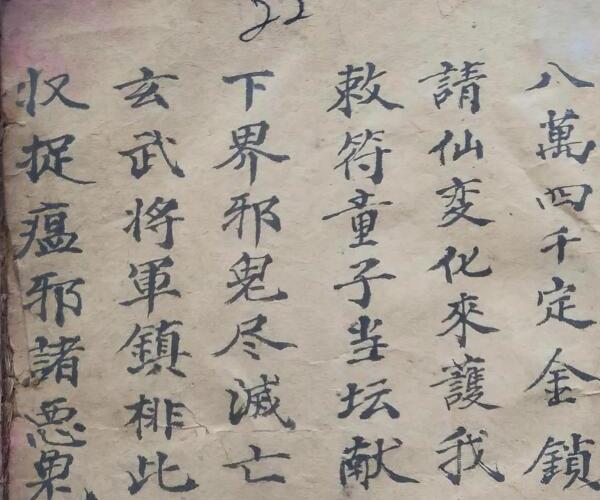 22
八萬四千定金鎖
請仙变化來護我
敕符童子当坛献
下界邪鬼尽滅亡
玄武将軍鎮排此
収捉瘟邪諸惡鬼